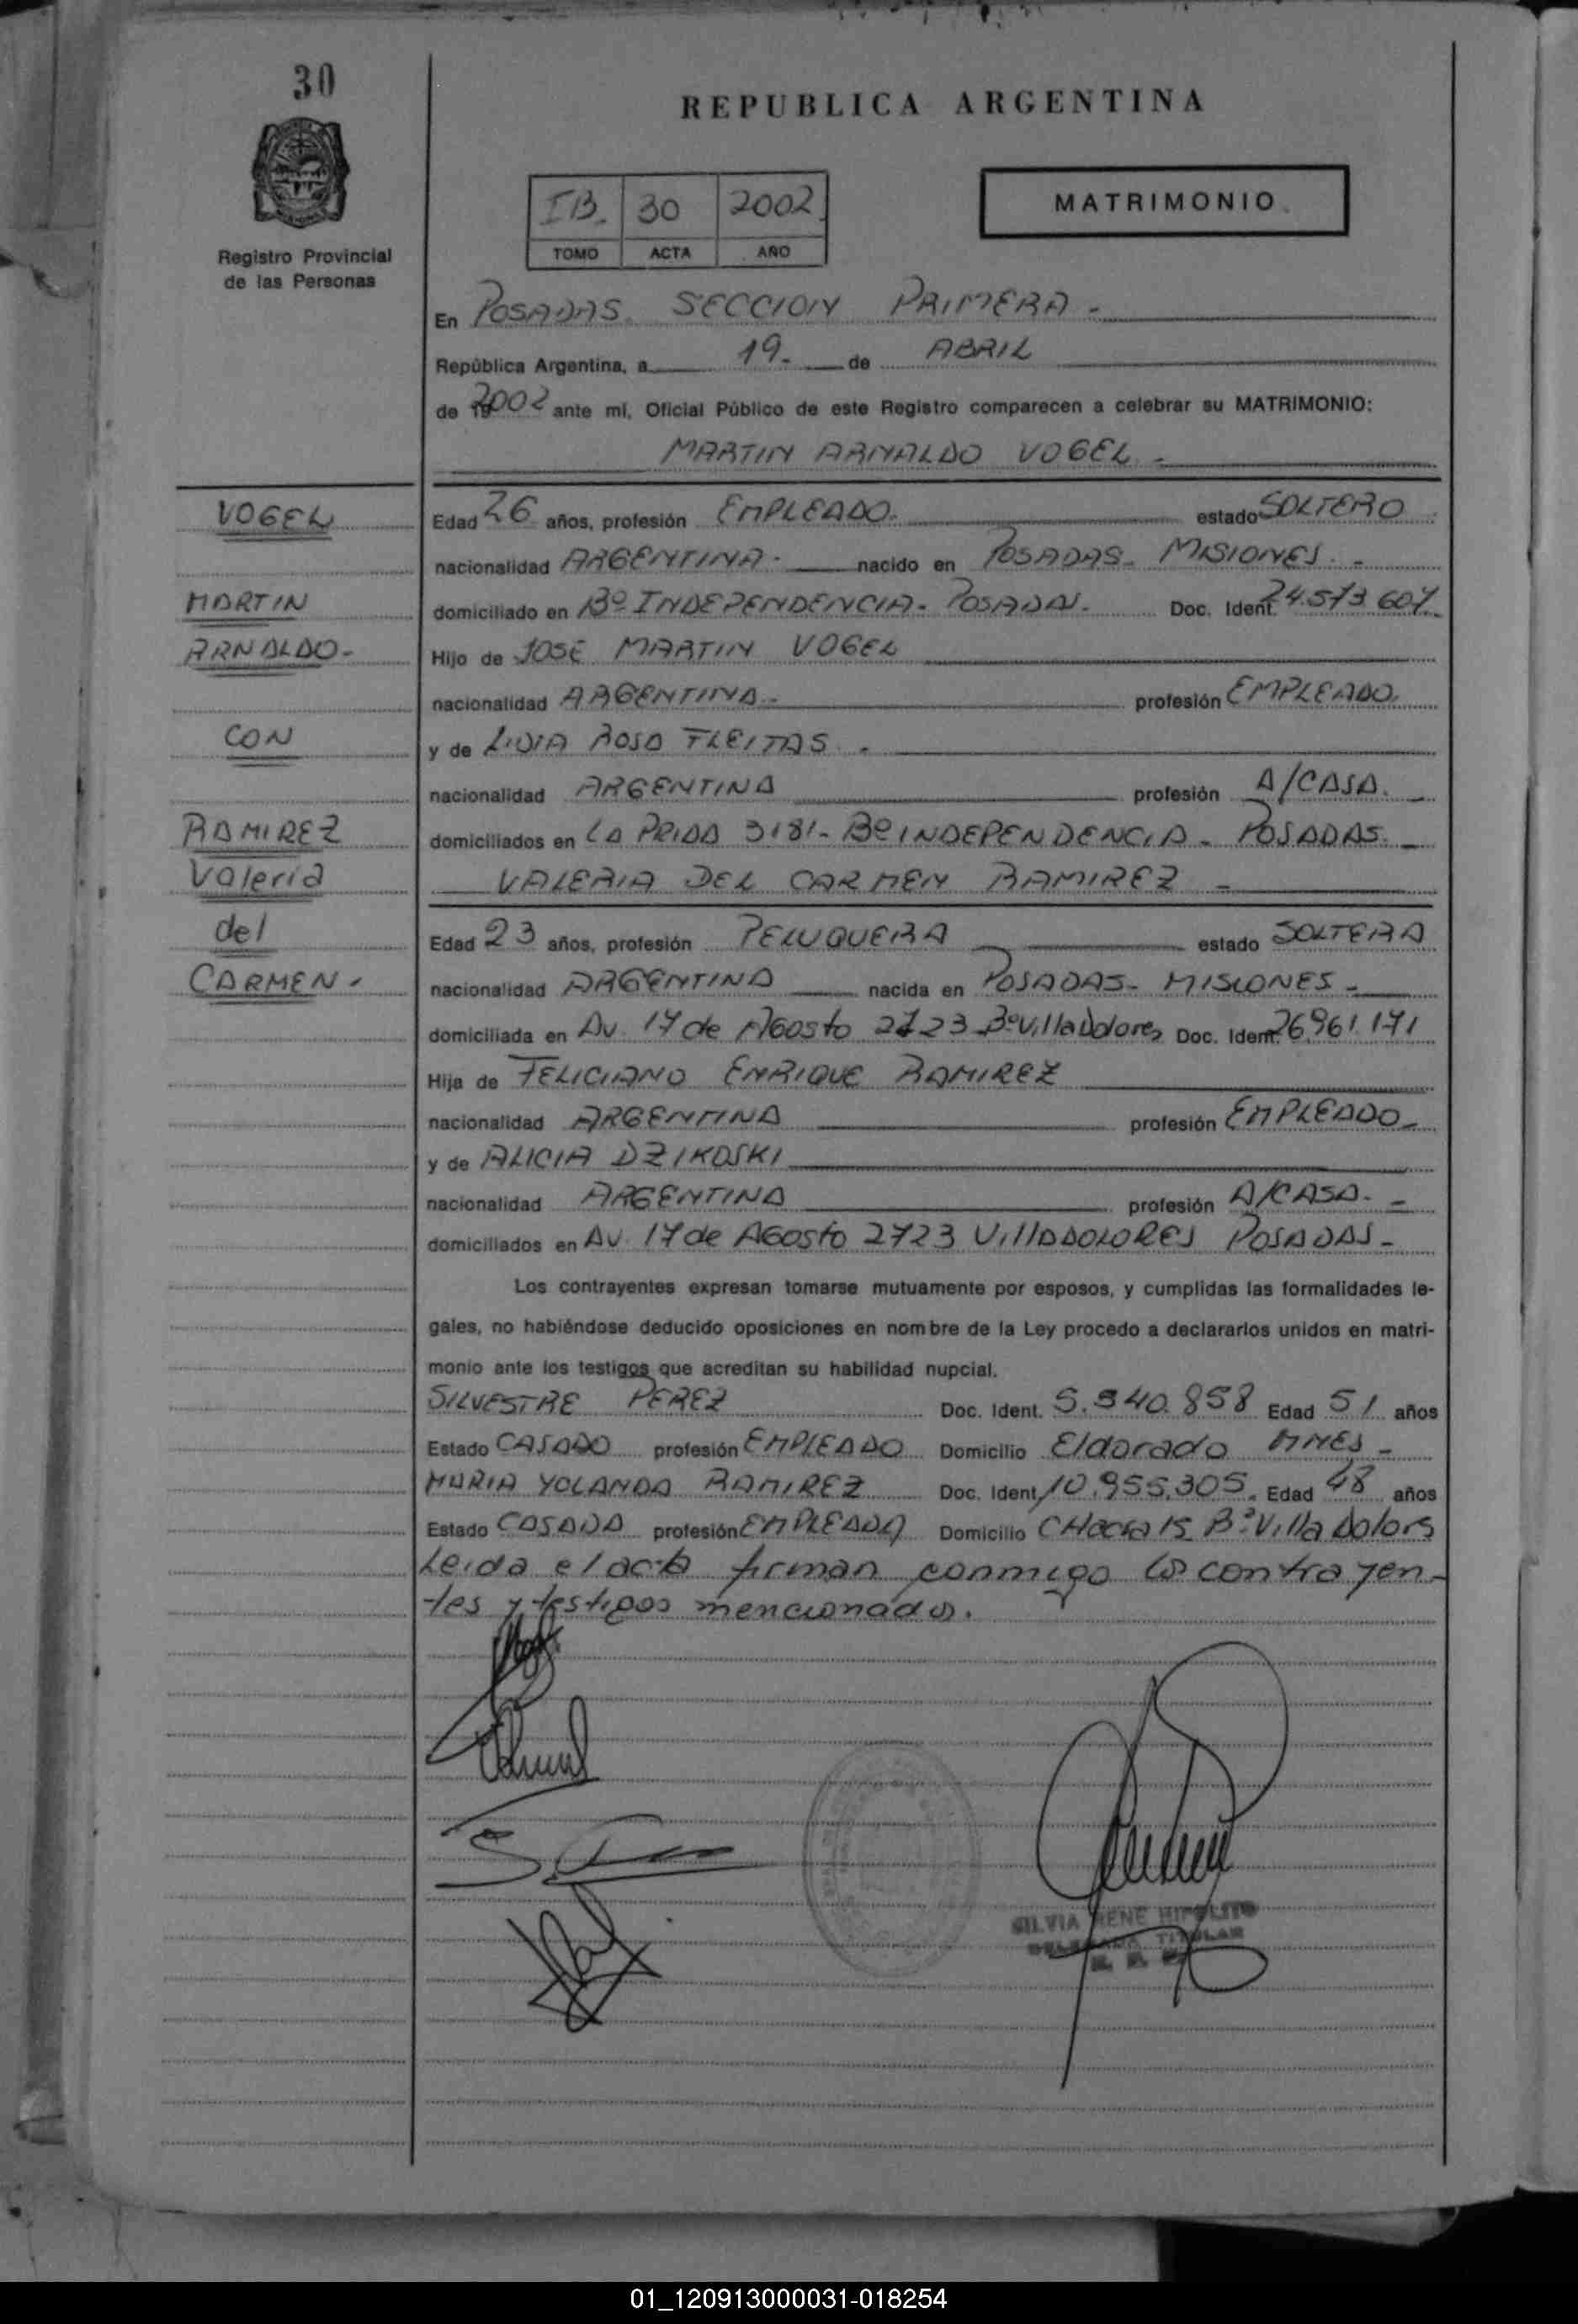 30
REPUBLICA ARGENTINA
IB. 30 2002
TOMO ACTA AÑO
MATRIMONIO
Registro Provincial
de las Personas
En POSADAS. SECCION PRIMERA -
República Argentina, a 19. de ABRIL
de 2002 ante mí, Oficial Público de este Registro comparecen a celebrar su MATRIMONIO:
MARTIN ARNALDO VOGEL -
VOGEL
MARTIN
ARNALDO-
CON
RAMIREZ
Valeria
del
CARMEN.
Edad 26 años, profesión EMPLEADO. estado SOLTERO
nacionalidad ARGENTINA. nacido en POSADAS- MISIONES. -
domiciliado en Bº INDEPENDENCIA- POSADAS. Doc. Ident. 24.573.607
Hijo de JOSE MARTIN VOGEL
nacionalidad ARGENTINA.- profesión EMPLEADO.
y de LIDIA ROSA FLEITAS.
nacionalidad ARGENTINA profesión A/CASA.
domiciliados en LA PRIDA 3181- Bº INDEPENDENCIA - POSADAS. -
VALERIA DEL CARMEN RAMIREZ -
Edad 23 años, profesión PELUQUERA estado SOLTERA
nacionalidad ARGENTINA nacida en POSADAS- MISIONES -
domiciliada en Av. 17 de Agosto 2723 Bº Villa Dolores Doc. Ident. 26.961.171
Hija de FELICIANO ENRIQUE RAMIREZ
nacionalidad ARGENTINA profesión EMPLEADO-
y de ALICIA DZIKOSKI
nacionalidad ARGENTINA profesión A/CASA. -
domiciliados en Av. 17 de AGosto 2723 VillA DOLORES POSADAS-
Los contrayentes expresan tomarse mutuamente por esposos, y cumplidas las formalidades le-
gales, no habiéndose deducido oposiciones en nombre de la Ley procedo a declararlos unidos en matri-
monio ante los testigos que acreditan su habilidad nupcial.
SILVESTRE PEREZ Doc. Ident. 5.940.858 Edad 51 años
Estado CASADO profesión EMPLEADO Domicilio Eldorado MNES -
MARIA YOLANDA RAMIREZ Doc. Ident. 10.955.305. Edad 48 años
Estado CASADA profesión EMPLEADA Domicilio CHacra 15 Bº Villa Dolors
Leida el acta firman conmigo los contrayen-
tes y testigos mencionados.
SILVIA RENE HIPOLITO
DELEGADA TITULAR
01_120913000031-018254